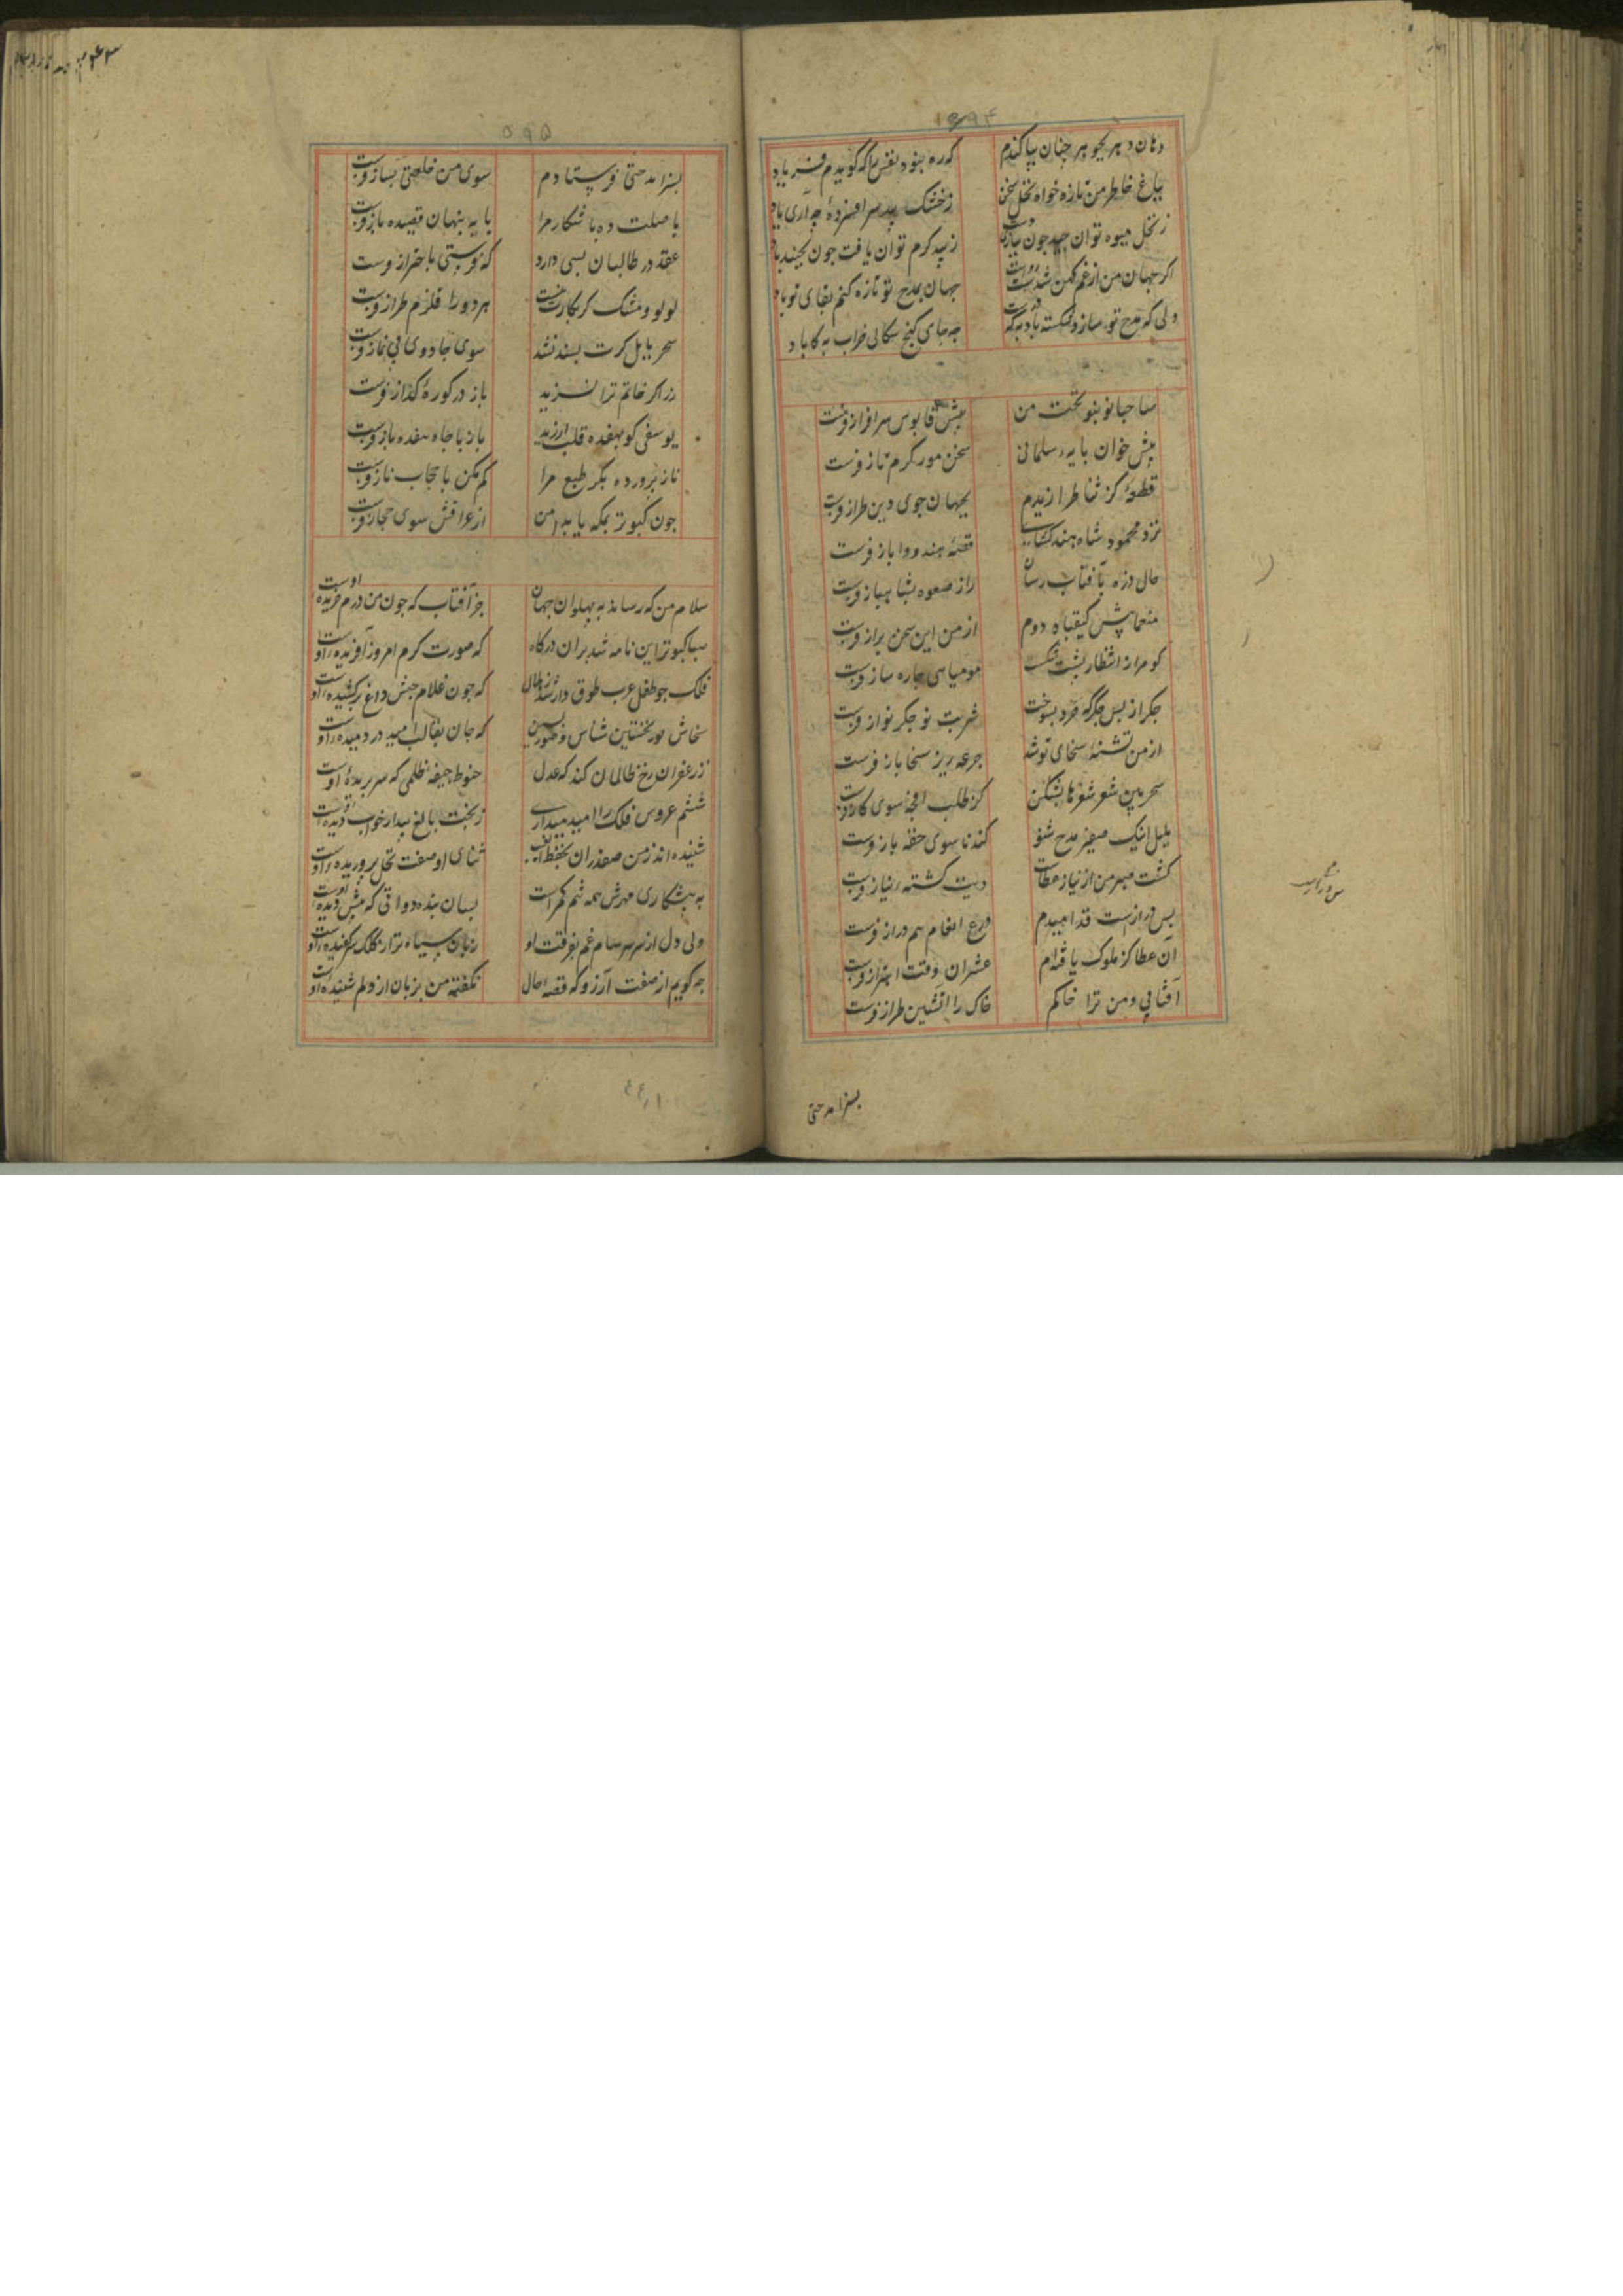 ۵۹۴
دهان دهر بحو هر جنان بیاکندم که ره بنود نفس را که کویدم فریاد
بباغ خاطر من تازه خواه نخل سخن زخشک بید سر افسرده چه آری یاد
ز نخل میوه توان چید جون بیازی دست ز بید کرم توان یافت جون بجنبد باد
اکر جهان من از غم کهن شدست رواست جهان بمدح تو تازه کنم بقای تو باد
ولی که مدح تو سازد شکسته باد به که جه جای کنج سکالی خراب به کاباد
صاحبا نو بنو تحیت من پیش قابوس سرافراز فرست
پیش خوان پایه سلمانی سخن مور کرم تاز فرست
قطعهٔ کز ثنا طرازیدم بجهان جوی دین طراز فرست
نزد محمود شاه هند کشای قصهٔ هندو وا باز فرست
حال ذره بآفتاب رسان راز صعوه بشاهباز فرست
منعما پیش کیقباد دوم از من این سخن براز فرست
کو مرا ز انتظار پشت شکست مومیایی جاره ساز فرست
جکر از بس جکر که خورد بسوخت شربت نو جکر نواز فرست
از من تشنهٔ سخای تو شد جرعه ریز سخا باز فرست
سحر بین شعر شعرها بشکن کز طلب اکنجه سوی کاز فرست
بلبل اینک صفیر مدح شنو کندنا سوی حقه باز فرست
کشت صبر من از نیاز عطات دیت کشته نیاز فرست
بس درازست قد امیدم درع انعام هم دراز فرست
آن عطا کز ملوک یافته‌ام عشر آن وقت اهتزاز فرست
آفتابی و من ترا خاکم خاک را آتشین طراز فرست
بسزا مدحتی
۵۹۵
بسزا مدحتی فرستادم سوی من خلعتی بساز فرست
یا صلت ده باشکار مرا یا به پنهان قصیده باز فرست
عقد در طالبان بسی دارد که فرستی باحتراز فرست
لولو و مشک کر بکارت نیست هر دو را قلزم طراز فرست
سحر بابل کرت پسند نشد سوی جادوی بی نماز فرست
زر اکر خاتم ترا نسزید باز در کورهٔ کداز فرست
یوسفی کو بهفده قلب ارزید باز با جاه هفده باز فرست
ناز پرورده بکر طبع مرا کم مکن با حجاب ناز فرست
جون کبوتر بمکه یابد امن از عراقش سوی حجاز فرست
سلام من که رساند به پهلوان جهان جز آفتاب که جون من درم خریده اوست
صبا کبوتر این نامه شد بران درکاه که صورت کرم امروز آفریده اوست
فلک جو طفل عرب طوق دار شد ز هلال که جون غلام حبش داغ برکشیده اوست
سخاش صور نخستین شناس و صور پسین که جان بقالب امید در دمیده اوست
ز زعفران رخ ظالمان کند که عدل حنوط جیفه ظلمی که سر بریدهٔ اوست
ششم عروس فلک را امید میداری ز بخت بالغ بیدار خواب دیده اوست
شنیده‌اند ز من صفدران بحفظ الغیب ثنای او صفت نحل پروریده اوست
به پیشکاری مهرش همه تنم کمر است بسان بنده دواتی که پیش دیده اوست
ولی دل از سر سرسام غم بفرقت او زبان سیاه تر از کلک سر کفیده اوست
جه کویم از صفت آرزو که قصه حال نکفته من بزبان از دلم شنیده اوست